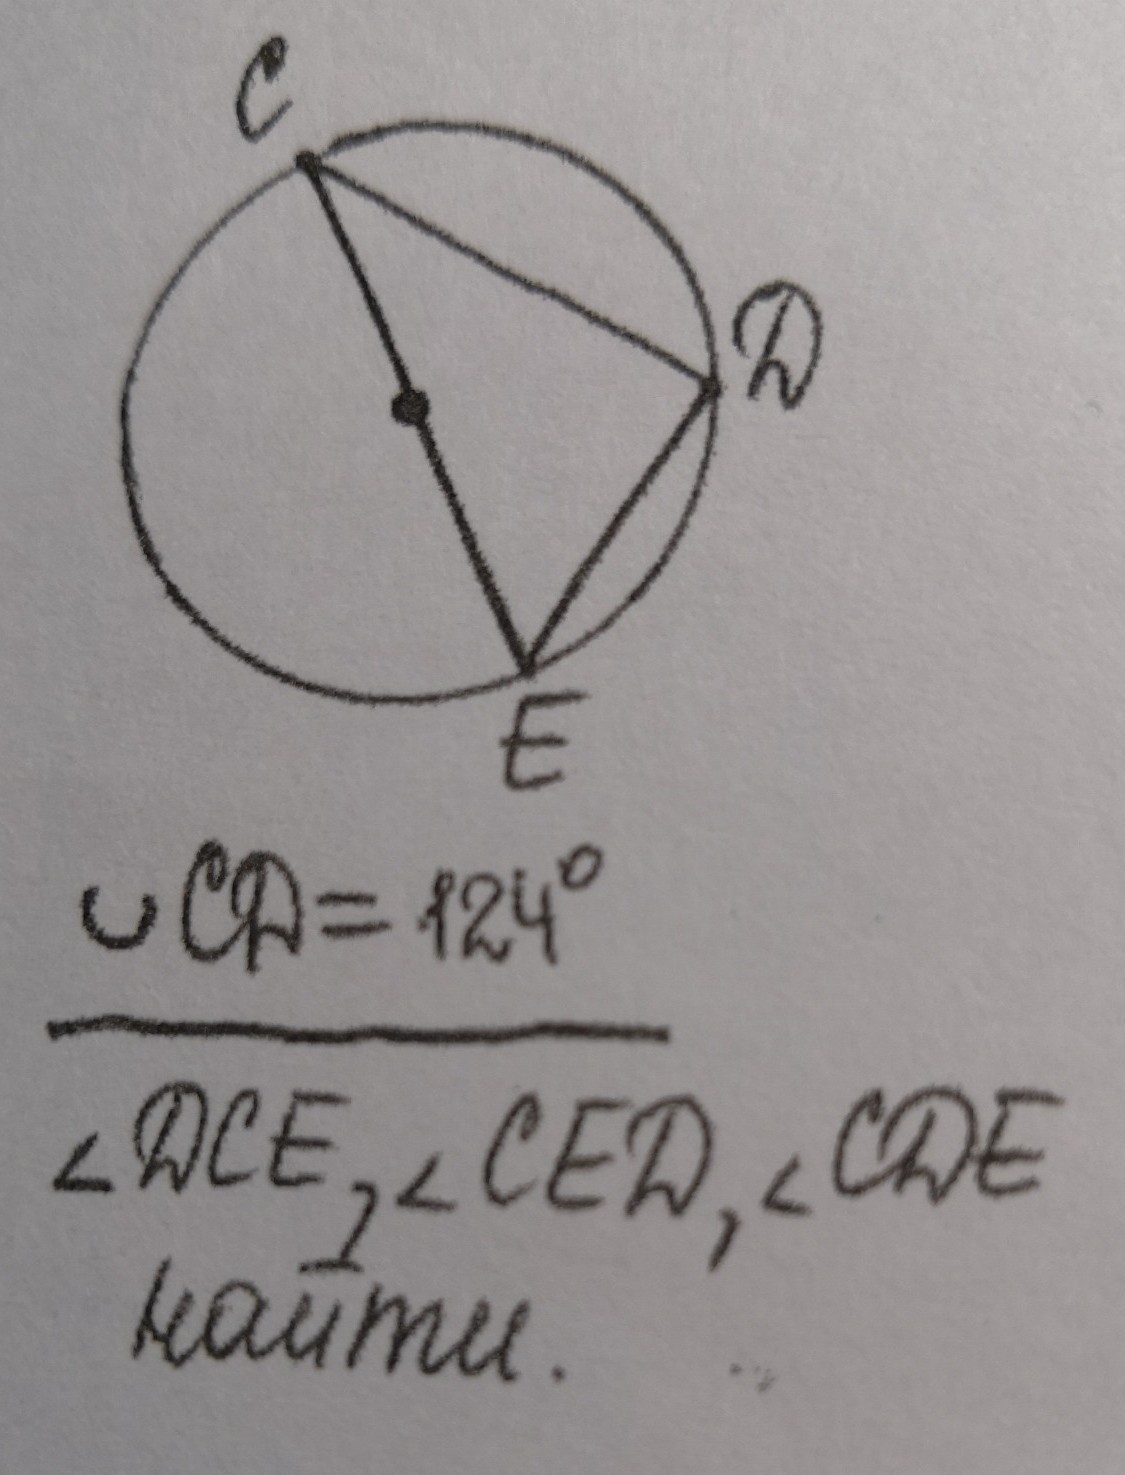 C
D
E
∪CD = 124°
∠DCE, ∠CED, ∠CDE
найти.